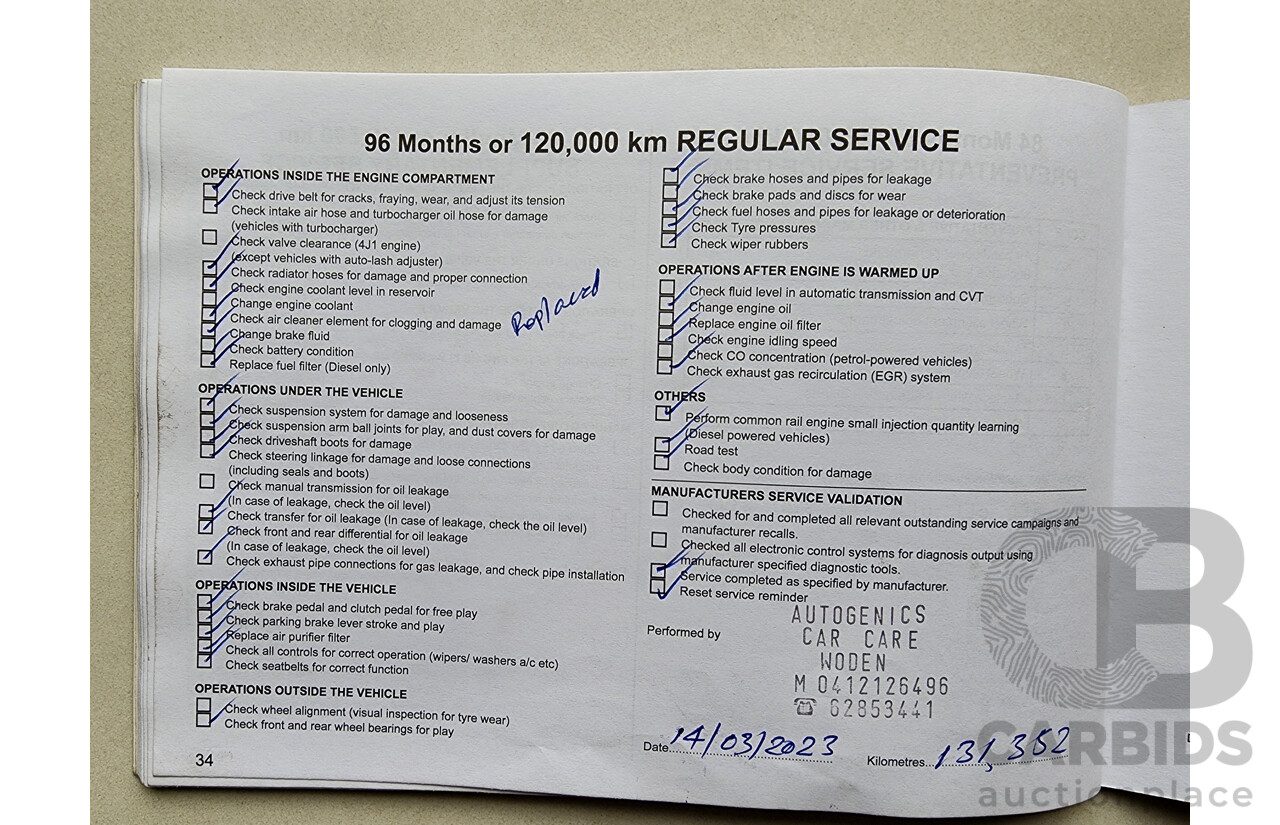 96 Months or 120,000 km REGULAR SERVICE
OPERATIONS INSIDE THE ENGINE COMPARTMENT
Check drive belt for cracks, fraying, wear, and adjust its tension
Check intake air hose and turbocharger oil hose for damage
(vehicles with turbocharger)
Check valve clearance (4J1 engine)
(except vehicles with auto-lash adjuster)
Check radiator hoses for damage and proper connection
Check engine coolant level in reservoir
Change engine coolant
Check air cleaner element for clogging and damage
Replaced
Change brake fluid
Check battery condition
Replace fuel filter (Diesel only)
OPERATIONS UNDER THE VEHICLE
Check suspension system for damage and looseness
Check suspension arm ball joints for play, and dust covers for damage
Check driveshaft boots for damage
Check steering linkage for damage and loose connections
(including seals and boots)
Check manual transmission for oil leakage
(In case of leakage, check the oil level)
Check transfer for oil leakage (In case of leakage, check the oil level)
Check front and rear differential for oil leakage
(In case of leakage, check the oil level)
Check exhaust pipe connections for gas leakage, and check pipe installation
OPERATIONS INSIDE THE VEHICLE
Check brake pedal and clutch pedal for free play
Check parking brake lever stroke and play
Replace air purifier filter
Check all controls for correct operation (wipers/ washers a/c etc)
Check seatbelts for correct function
OPERATIONS OUTSIDE THE VEHICLE
Check wheel alignment (visual inspection for tyre wear)
Check front and rear wheel bearings for play
34
Check brake hoses and pipes for leakage
Check brake pads and discs for wear
Check fuel hoses and pipes for leakage or deterioration
Check Tyre pressures
Check wiper rubbers
OPERATIONS AFTER ENGINE IS WARMED UP
Check fluid level in automatic transmission and CVT
Change engine oil
Replace engine oil filter
Check engine idling speed
Check CO concentration (petrol-powered vehicles)
Check exhaust gas recirculation (EGR) system
OTHERS
Perform common rail engine small injection quantity learning
(Diesel powered vehicles)
Road test
Check body condition for damage
MANUFACTURERS SERVICE VALIDATION
Checked for and completed all relevant outstanding service campaigns and
manufacturer recalls.
Checked all electronic control systems for diagnosis output using
manufacturer specified diagnostic tools.
Service completed as specified by manufacturer.
Reset service reminder
Performed by
AUTOGENICS
CAR CARE
WODEN
M 0412126496
☎ 62853441
Date 14/03/2023
Kilometres 131,352
CB
CARBIDS
auctionplace